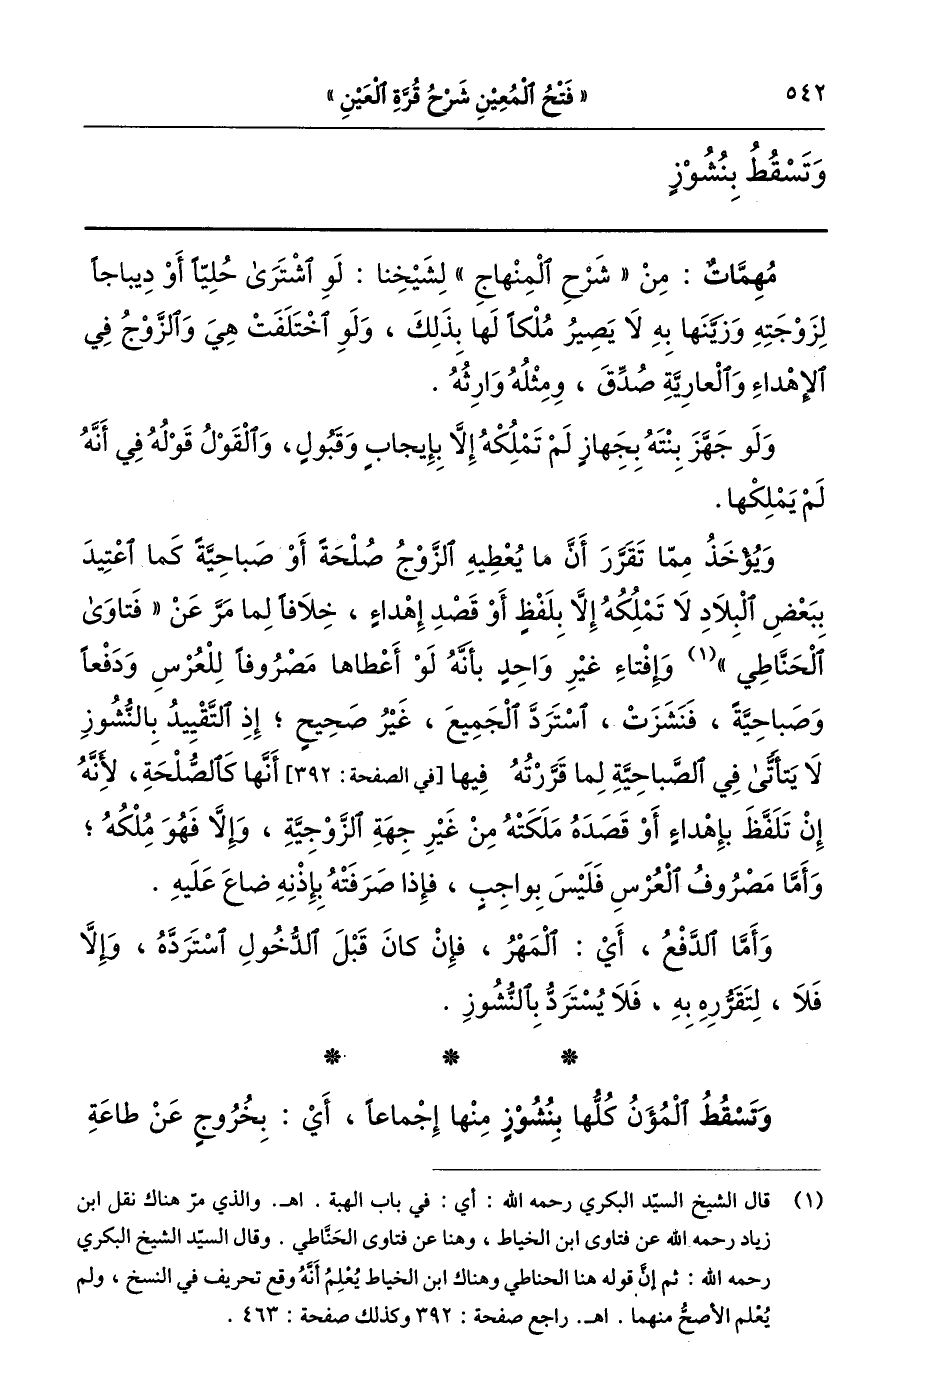 ٥٤٢ « فَتْحُ ٱلْمُعِيْنِ شَرْحُ قُرَّةِ ٱلْعَيْنِ »
وَتَسْقُطُ بِنُشُوْزٍ
مُهِمَّاتٌ : مِنْ « شَرْحِ ٱلْمِنْهاجِ » لِشَيْخِنا : لَوِ ٱشْتَرَىٰ حُلِيّاً أَوْ دِيباجاً
لِزَوْجَتِهِ وَزَيَّنَها بِهِ لَا يَصِيرُ مُلْكاً لَها بِذَلِكَ ، وَلَوِ ٱخْتَلَفَتْ هِيَ وَٱلزَّوْجُ فِي
ٱلإِهْداءِ وَٱلْعارِيَّةِ صُدِّقَ ، وَمِثْلُهُ وَارِثُهُ .
وَلَو جَهَّزَ بِنْتَهُ بِجَهازٍ لَمْ تَمْلِكْهُ إِلَّا بِإِيجابٍ وَقَبُولٍ، وَٱلْقَوْلُ قَوْلُهُ فِي أَنَّهُ
لَمْ يَمْلِكْها .
وَيُؤْخَذُ مِمّا تَقَرَّرَ أَنَّ ما يُعْطِيهِ ٱلزَّوْجُ صُلْحَةً أَوْ صَباحِيَّةً كَما ٱعْتِيدَ
بِبَعْضِ ٱلْبِلَادِ لَا تَمْلُكُهُ إِلَّا بِلَفْظٍ أَوْ قَصْدِ إِهْداءٍ ، خِلَافاً لِما مَرَّ عَنْ « فَتاوَىٰ
ٱلْحَنَّاطِي »(١) وَإِفْتاءِ غيْرِ وَاحِدٍ بأنَّهُ لَوْ أَعْطاها مَصْرُوفاً لِلْعُرْسِ وَدَفْعاً
وَصَباحِيَّةً ، فَنَشَزَتْ ، ٱسْتَرَدَّ ٱلْجَمِيعَ ، غَيْرُ صَحِيحٍ ؛ إِذِ ٱلتَّقْيِيدُ بِالنُّشُوزِ
لَا يَتأَتَّىٰ فِي ٱلصَّباحِيَّةِ لِما قَرَّرْتُهُ فِيها [في الصفحة: ٣٩٢] أَنَّها كَٱلصُّلْحَةِ، لأَنَّهُ
إِنْ تَلَفَّظَ بِإِهْداءٍ أَوْ قَصَدَهُ مَلَكَتْهُ مِنْ غَيْرِ جِهَةِ ٱلزَّوْجِيَّةِ ، وَإِلَّا فَهُوَ مِلْكُهُ ؛
وَأَمَّا مَصْرُوفُ ٱلْعُرْسِ فَلَيْسَ بِواجِبٍ ، فَإِذا صَرَفَتْهُ بِإِذْنِهِ ضاعَ عَلَيهِ .
وَأَمَّا ٱلدَّفْعُ ، أَيْ : ٱلْمَهْرُ ، فإِنْ كانَ قَبْلَ ٱلدُّخُولِ ٱسْتَرَدَّهُ ، وَإِلَّا
فَلَا ، لِتَقَرُّرِهِ بِهِ ، فَلَا يُسْتَرَدُّ بِٱلنُّشُوزِ .
* * *
وَتَسْقُطُ ٱلْمُؤَنُ كُلُّها بِنُشُوْزٍ مِنْها إِجْماعاً ، أَيْ : بِخُرُوجٍ عَنْ طاعَةِ
(١) قال الشيخ السيّد البكري رحمه الله : أي : في باب الهبة . اهـ. والذي مرّ هناك نقل ابن
زياد رحمه الله عن فتاوى ابن الخياط ، وهنا عن فتاوى الحَنَّاطي . وقال السيّد الشيخ البكري
رحمه الله : ثم إنَّ قوله هنا الحناطي وهناك ابن الخياط يُعْلِمُ أنَّهُ وقع تحريف في النسخ ، ولم
يُعْلم الأصحُّ منهما . اهـ. راجع صفحة : ٣٩٢ وكذلك صفحة : ٤٦٣ .